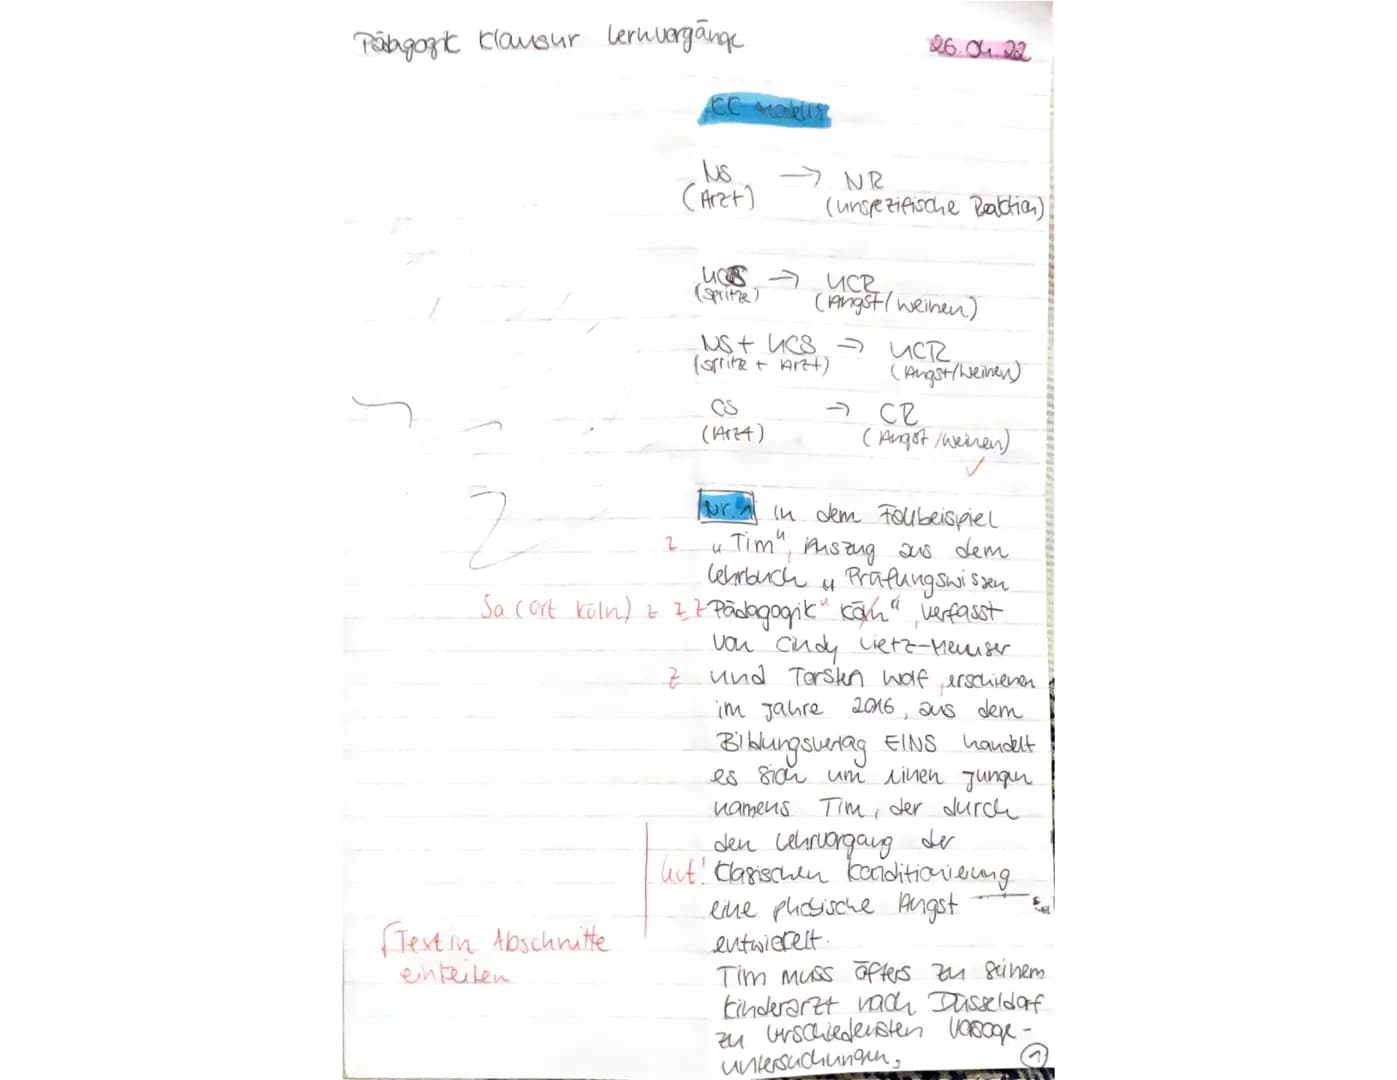 Pädagogik Klausur Lernvorgänge
26.04.22
NS → NR
(Arzt) (unspezifische Reaktion)
UCS → UCR
(Spritze) (Angst/weinen)
NS + UCS → UCR
(Spritze + Arzt) (Angst/weinen)
CS → CR
(Arzt) (Angst/weinen)
✓
Nr. 1 in dem Fallbeispiel
Z „Tim", Auszug aus dem
Lehrbuch „ Prüfungswissen
Sa (Ort Köln) Z Z Z Pädagogik" Köln", verfasst
von Cindy Lietz-
Z und Torsten Wolf, erschienen
im Jahre 2016, aus dem
Bildungsverlag EINS handelt
es sich um einen Jungen
namens Tim, der durch
den Lehrvorgang der
Gut! Clasischen Konditionierung
eine phobische Angst
entwickelt.
Text in Abschnitte
einteilen
Tim muss öfters zu seinem
Kinderarzt nach Düsseldorf
zu verschiedensten Vorsorge-
untersuchungen,
1